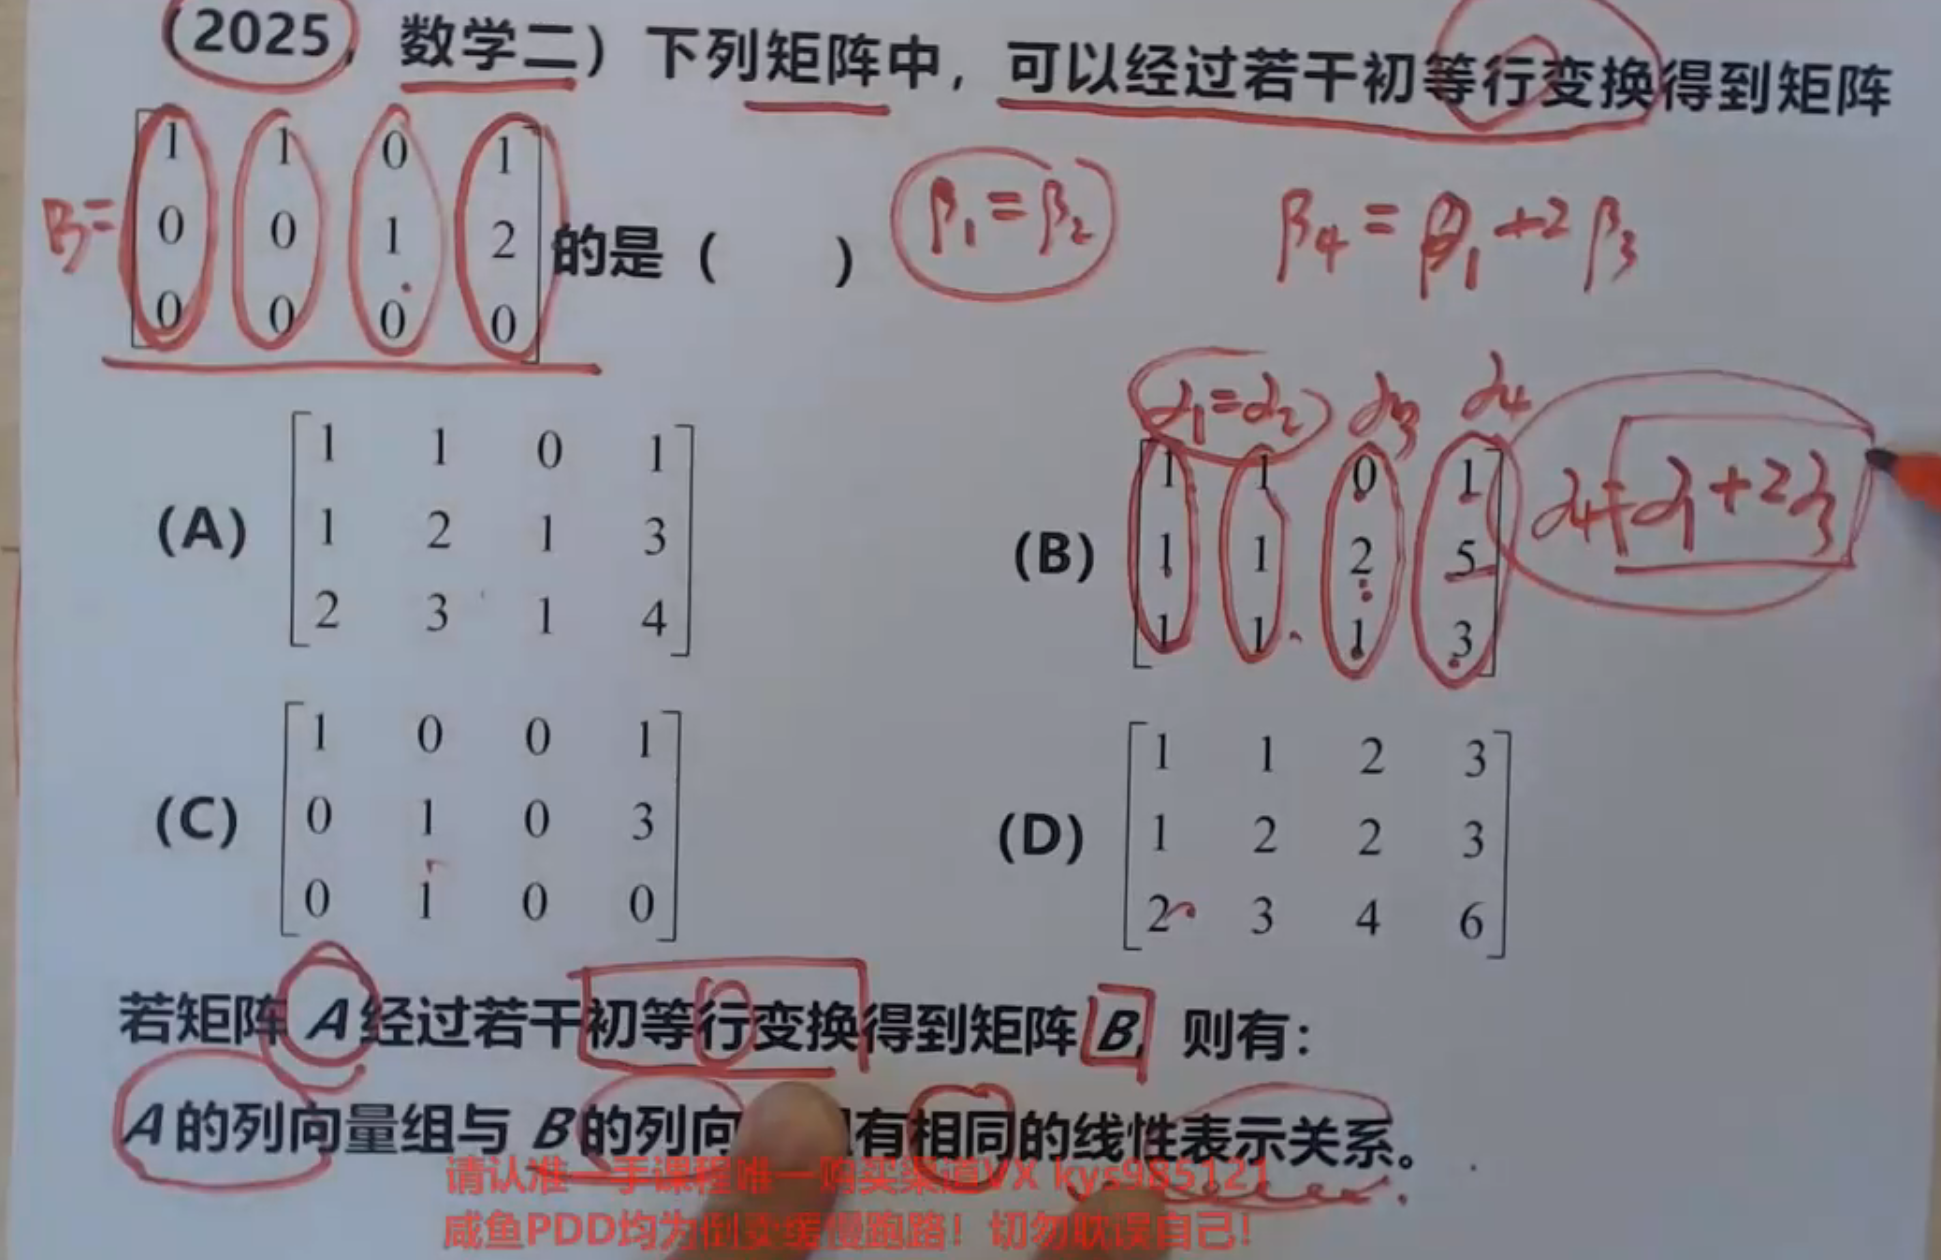 (2025，数学二）下列矩阵中，可以经过若干初等行变换得到矩阵
B=
1 1 0 1
0 0 1 2
0 0 0 0
的是（ ）
β₁=β₂ β₄=β₁+2β₃
(A)
1 1 0 1
1 2 1 3
2 3 1 4
α₁=α₂ α₃ α₄
(B)
1 1 0 1
1 1 2 5
1 1 1 3
α₄=α₁+2α₃
(C)
1 0 0 1
0 1 0 3
0 1 0 0
(D)
1 1 2 3
1 2 2 3
2 3 4 6
若矩阵 A 经过若干初等行变换得到矩阵 B，则有：
A 的列向量组与 B 的列向 有相同的线性表示关系。
请认准一手课程唯一购买渠道VX kys985121
咸鱼PDD均为倒卖缓慢跑路！切勿耽误自己！